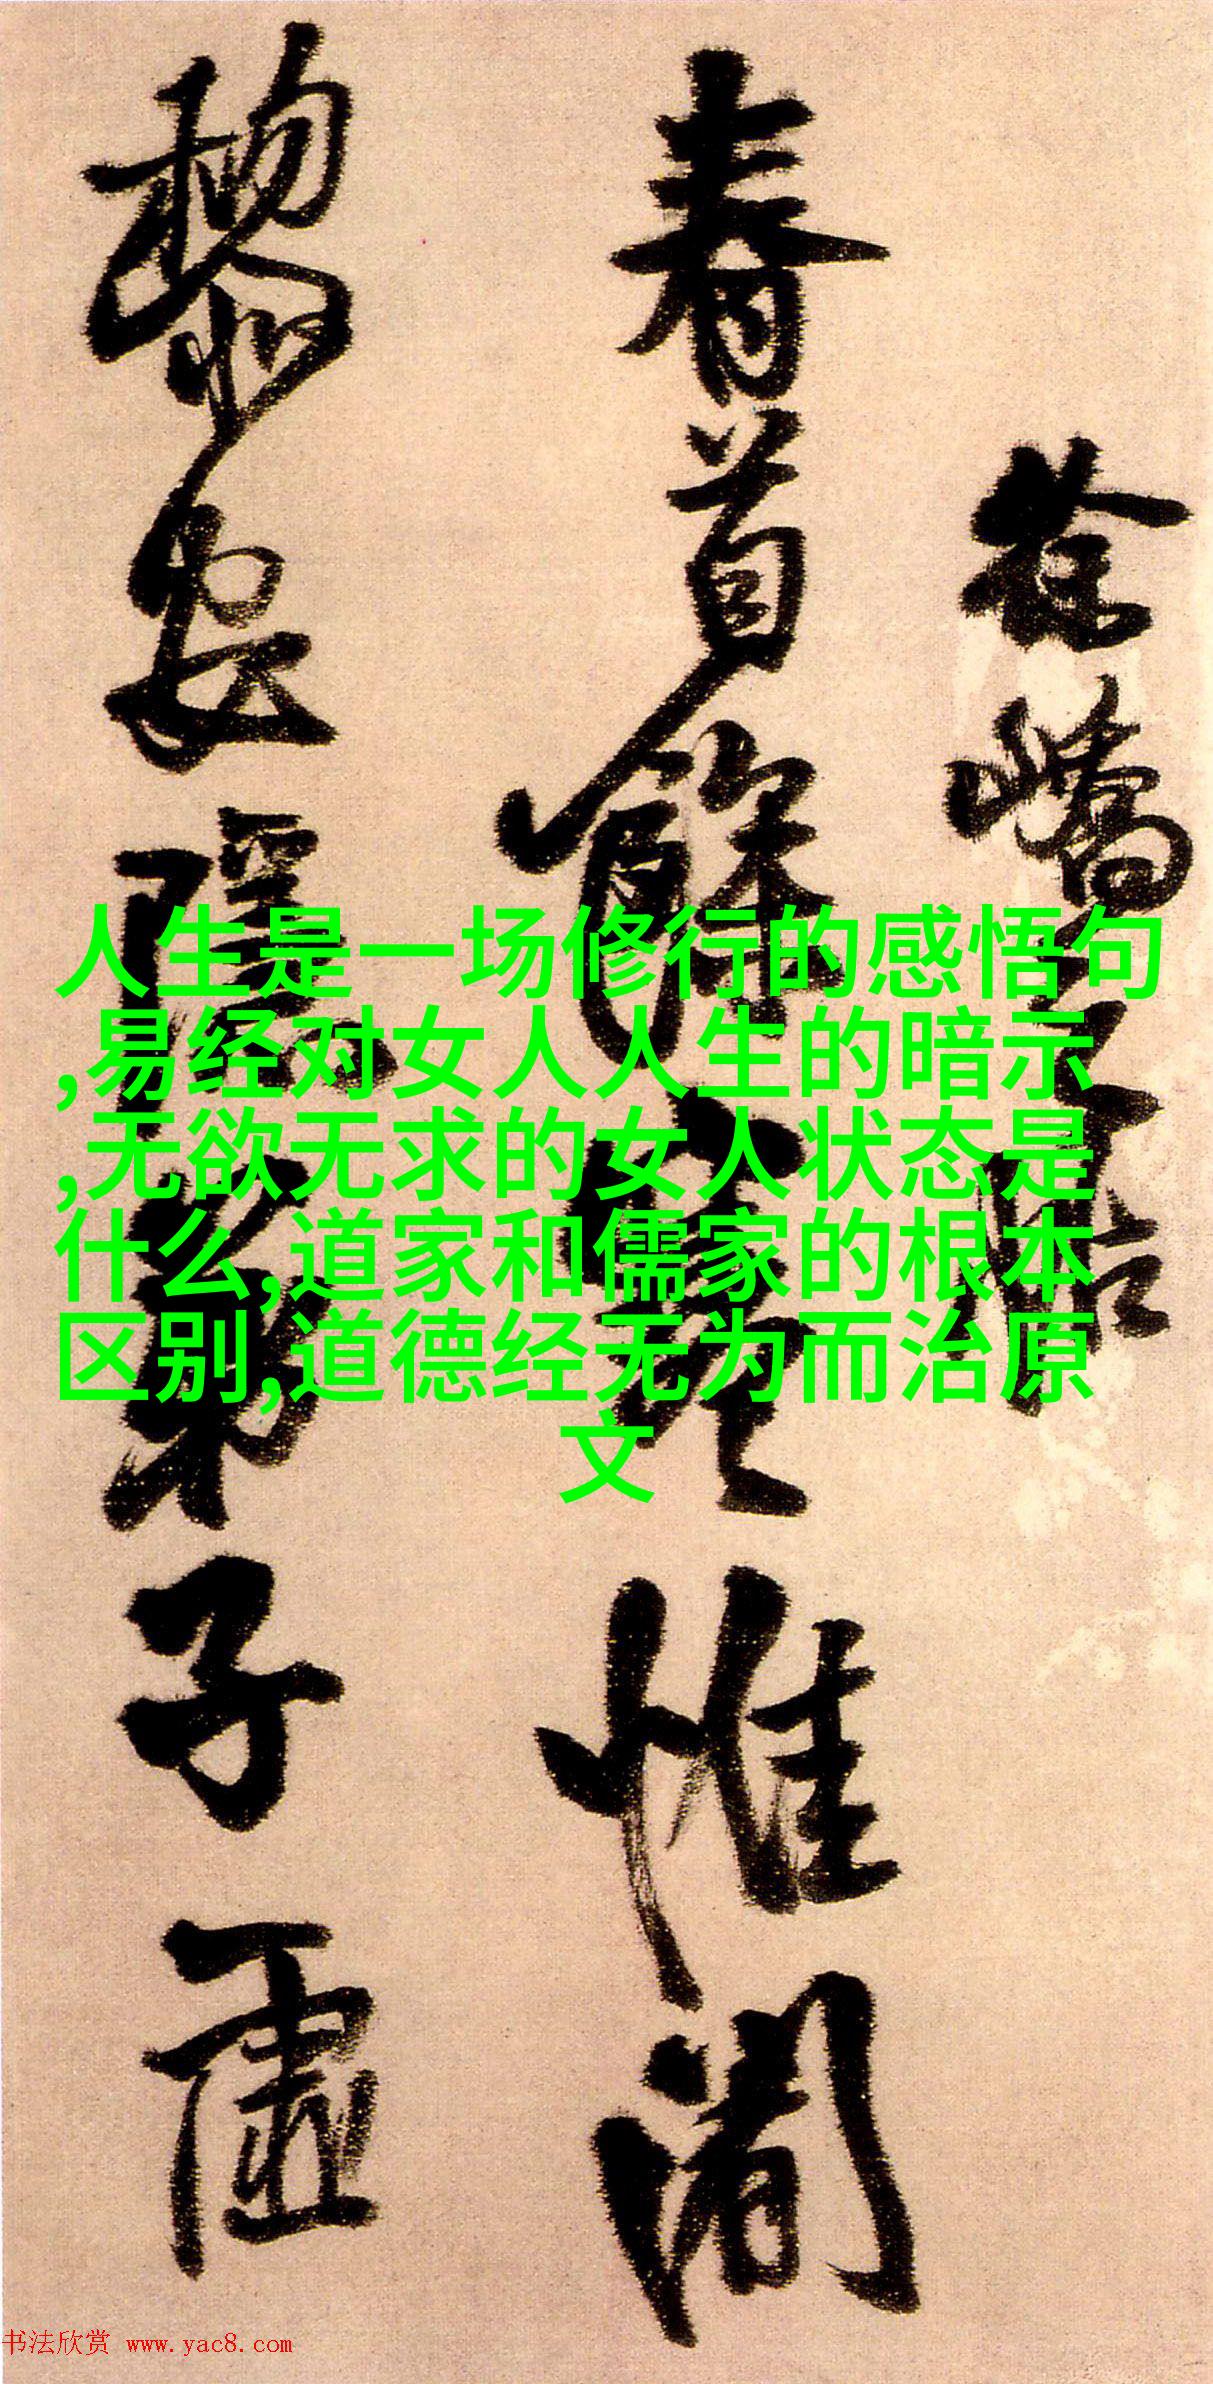 徐嶠之
春首餘寒惟闍
黎安隱弟子虛
人生是一场修行的感悟句
,易经对女人人生的暗示
,无欲无求的女人状态是
什么,道家和儒家的根本
区别,道德经无为而治原
文
书法欣赏 www.yac8.com